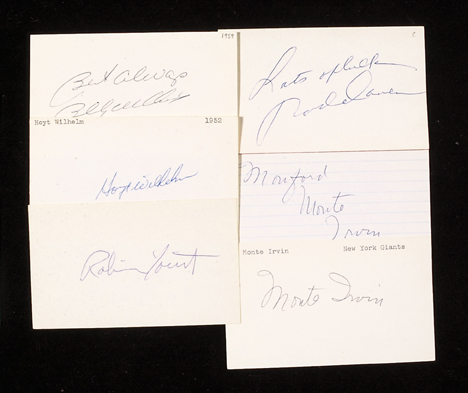 1959
Best Always
Billy Williams
Hoyt Wilhelm 1952
Hoyt Wilhelm
Robin Yount
C
Lots of luck
Rod Carew
Monford
Monte
Irvin
Monte Irvin New York Giants
Monte Irvin